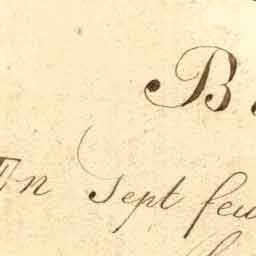 B
En Sept feu